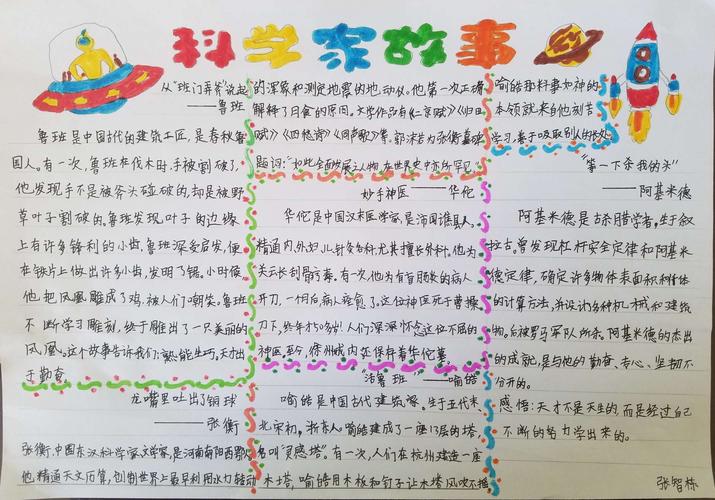 科学家故事
从“班门弄斧”说起
——鲁班
鲁班是中国古代的建筑工匠，是春秋鲁
国人。有一次，鲁班在伐木时，手被割破了，
他发现手不是被斧头碰破的，却是被野
草叶子割破的。鲁班发现叶子的边缘
上有许多锋利的小齿，鲁班深受启发，便
在铁片上做出许多小齿，发明了锯。小时候
他把凤凰雕成了鸡，被人们嘲笑。鲁班
不断学习雕刻，终于雕出了一只美丽的
凤凰。这个故事告诉我们：熟能生巧，天才出
于勤奋。
龙嘴里吐出了铜球
——张衡
张衡，中国东汉科学家文学家，是河南南阳西鄂人
他精通天文历算，创制世界上最早利用水力转动
的浑象和测定地震的地动仪。他第一次正确
解释了日食的原因。文学作品有《二京赋》《归田
赋》《四愁诗》《同声歌》等。郭沫若为张衡墓碑
题词：“如此全面发展之人物，在世界史中亦所罕见。”
妙手神医——华佗
华佗是中国汉末医学家，是沛国谯县人。
精通内、外、妇、儿、针灸各科，尤其擅长外科。他为
关云长刮骨疗毒。有一次，他为有盲肠炎的病人
开刀，一个月后病痊愈了。这位神医死于曹操
刀下，终年才50多岁！人们深深怀念这位下层的
神医，至今，徐州城内还保存着华佗墓。
“活鲁班”——喻皓
喻皓是中国古代建筑家。生于五代末
北宋初，浙东人。喻皓建成了一座13层的塔，
名叫“灵感塔”。有一次，人们在杭州建造一座
木塔，喻皓用木板和钉子让木塔风吹不摇
喻皓那料事如神的
本领就来自他刻苦
学习，善于吸取别人的长处。
“等一下杀我的头”
——阿基米德
阿基米德是古希腊学者，生于叙
拉古。曾发现杠杆安全定律和阿基米
德定律，确定许多物体表面积和体
的计算方法，并设计多种机械和建筑
物。后被罗马军队所杀。阿基米德的杰出
的成就，是与他的勤奋、专心、坚韧不
分开的。
感悟：天才不是天生的，而是经过自己
不断的努力学出来的。
张智栋